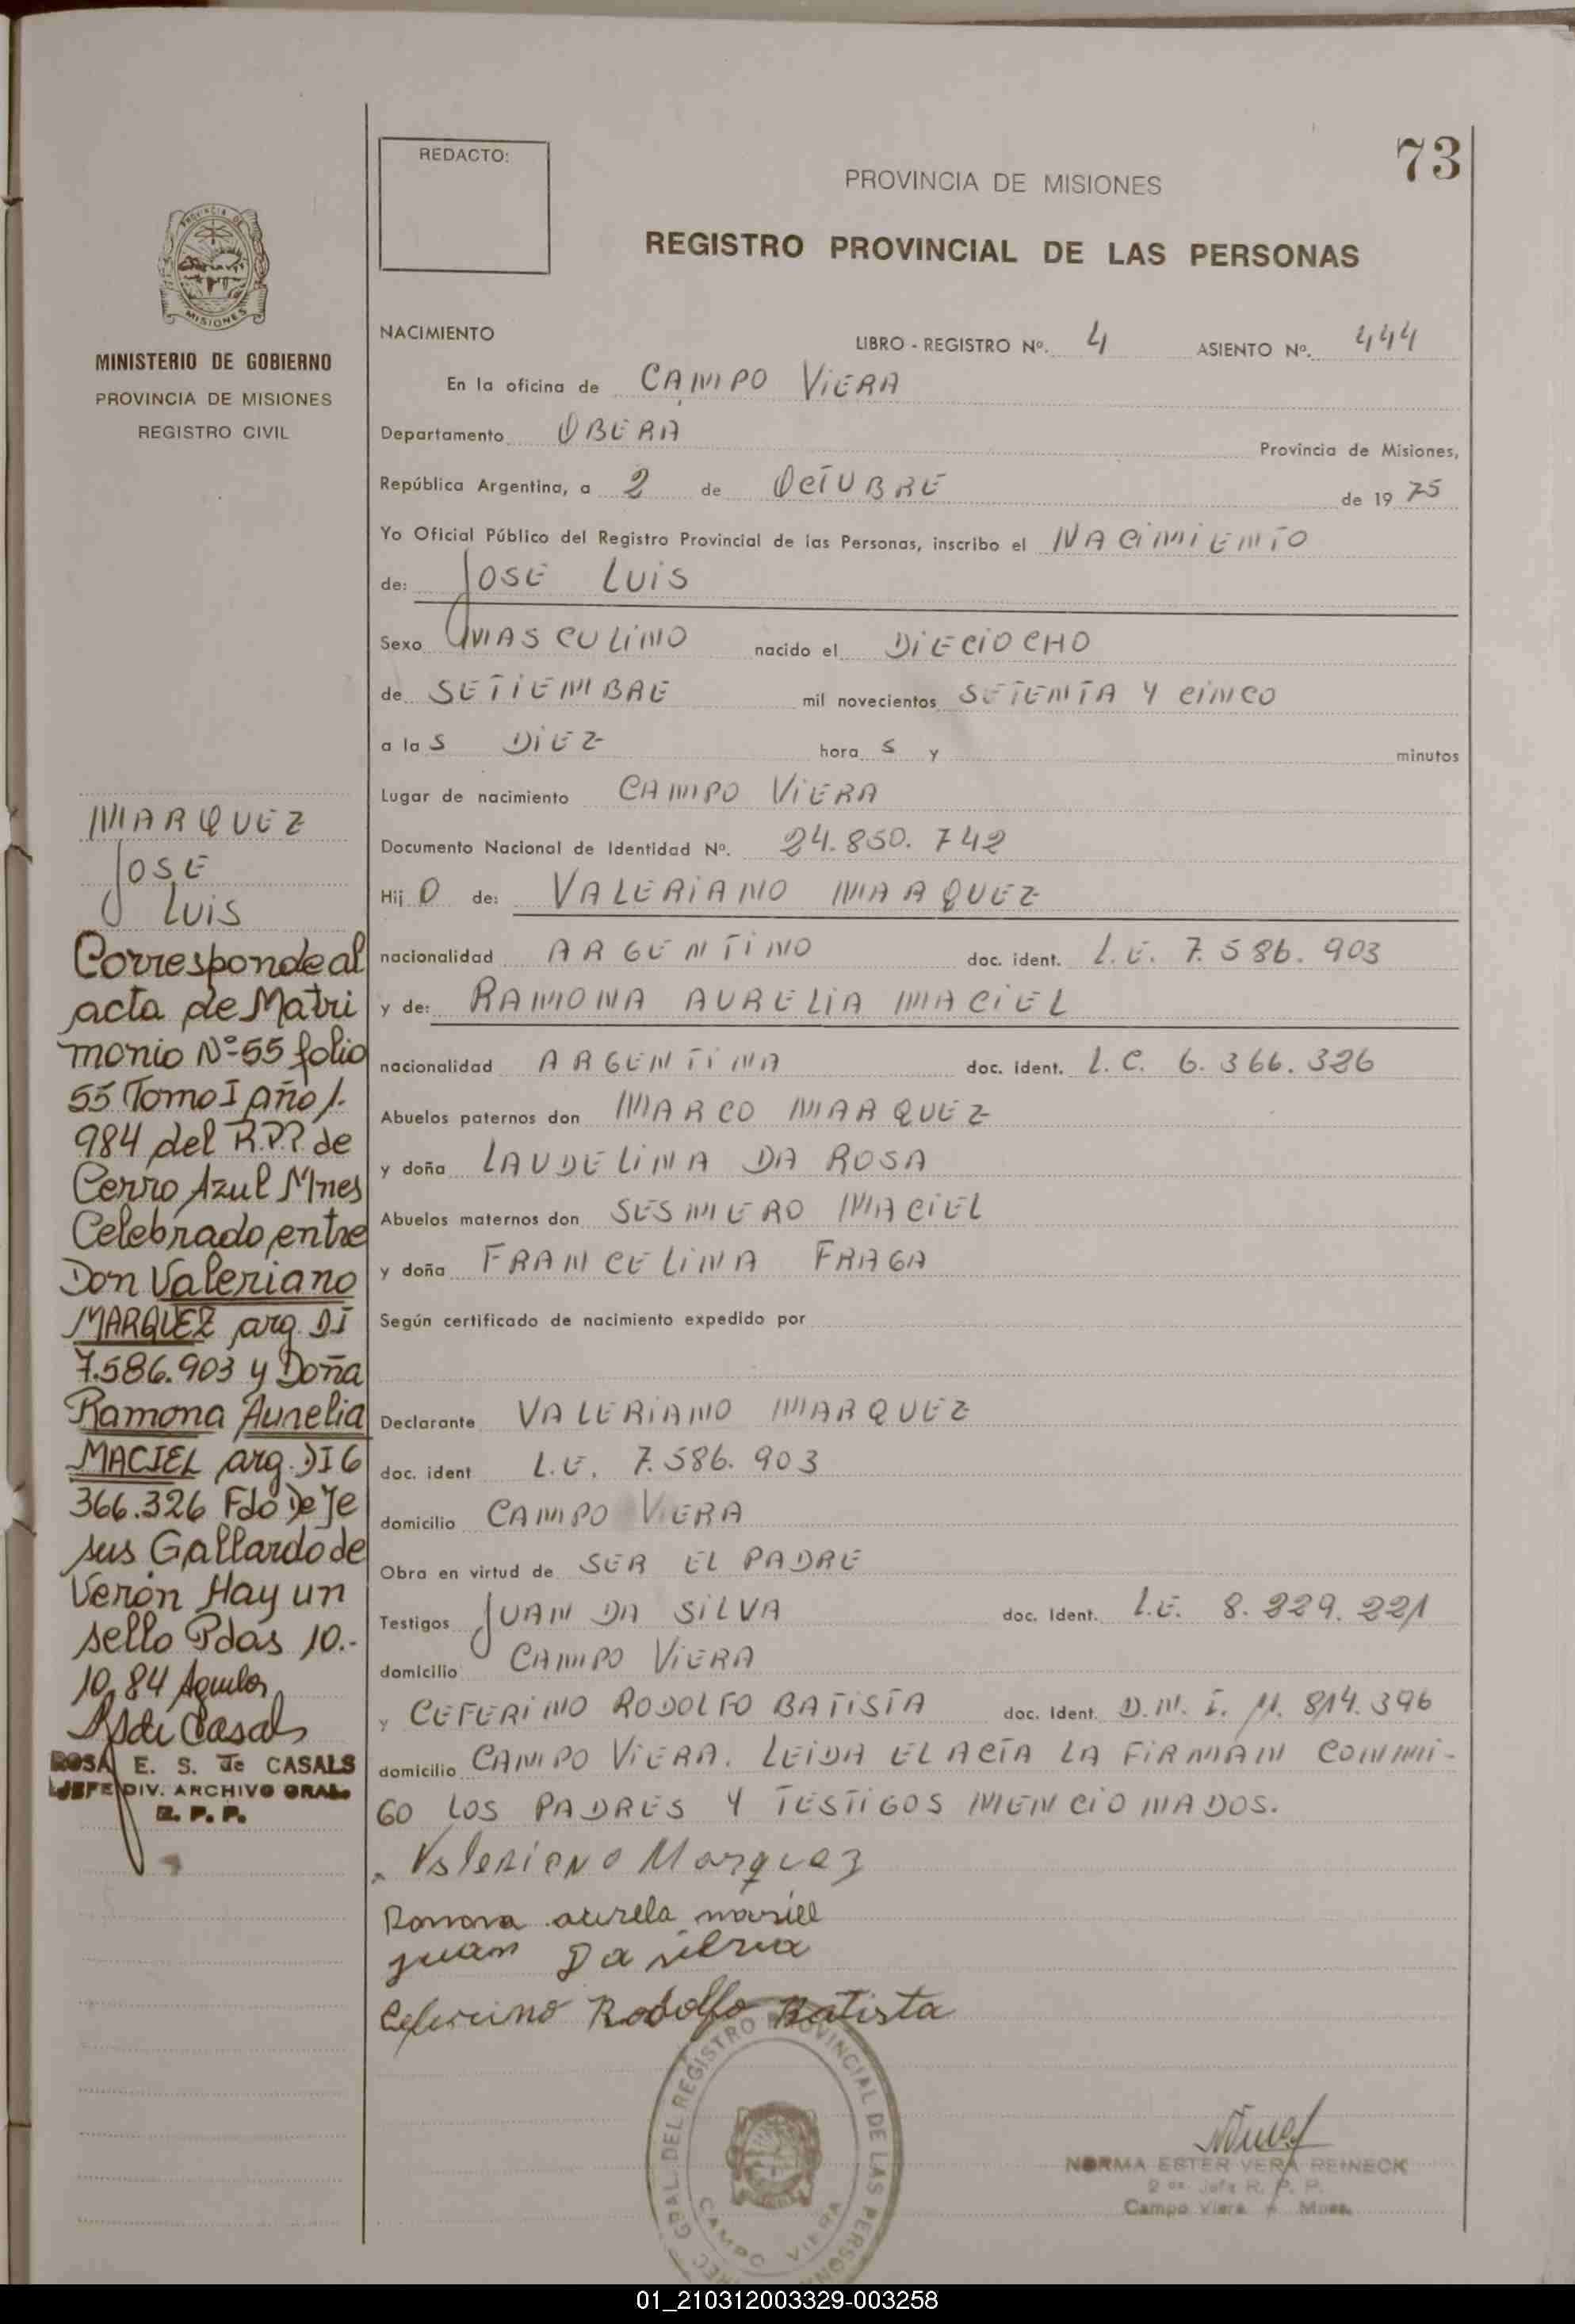 73
REDACTO:
PROVINCIA DE MISIONES
REGISTRO PROVINCIAL DE LAS PERSONAS
PROVINCIA DE
MISIONES
MINISTERIO DE GOBIERNO
PROVINCIA DE MISIONES
REGISTRO CIVIL
MARQUEZ
JOSE
LUIS
Corresponde al
acta de Matri
monio Nº 55 folio
55 Tomo I año 1.
984 del R.P.P. de
Cerro Azul Mnes
Celebrado entre
Don Valeriano
MARQUEZ arg. DI
7.586.903 y Doña
Ramona Aurelia
MACIEL arg. DI 6
366.326 Fdo De Je
sus Gallardo de
Verón Hay un
sello Pdas 10.-
10.84
ROSA E. S. de CASALS
JEFE DIV. ARCHIVO GRAL.
R. P. P.
NACIMIENTO LIBRO - REGISTRO Nº. 4 ASIENTO Nº. 444
En la oficina de CAMPO VIERA
Departamento OBERA Provincia de Misiones,
República Argentina, a 2 de OCTUBRE de 19 75
Yo Oficial Público del Registro Provincial de las Personas, inscribo el NACIMIENTO
de: JOSE LUIS
Sexo MASCULINO nacido el DIECIOCHO
de SETIEMBRE mil novecientos SETENTA Y CINCO
a la S DIEZ hora S y minutos
Lugar de nacimiento CAMPO VIERA
Documento Nacional de Identidad Nº. 24.850.742
Hij O de: VALERIANO MARQUEZ
nacionalidad ARGENTINO doc. ident. L.E. 7.586.903
y de: RAMONA AURELIA MACIEL
nacionalidad ARGENTINA doc. ident. L.C. 6.366.326
Abuelos paternos don MARCO MARQUEZ
y doña LAUDELINA DA ROSA
Abuelos maternos don SESMERO MACIEL
y doña FRANCELINA FRAGA
Según certificado de nacimiento expedido por
Declarante VALERIANO MARQUEZ
doc. ident L.E. 7.586.903
domicilio CAMPO VIERA
Obra en virtud de SER EL PADRE
Testigos JUAN DA SILVA doc. Ident. L.E. 8.229.221
domicilio CAMPO VIERA
y CEFERINO RODOLFO BATISTA doc. Ident. D.N.I. 11.814.396
domicilio CAMPO VIERA. LEIDA EL ACTA LA FIRMAN CONMI-
GO LOS PADRES Y TESTIGOS MENCIONADOS.
Valeriano Marquez
Ramona aurela masiel
juan Da silva
Ceferino Rodolfo Batista
GRAL. DEL REGISTRO PROVINCIAL DE LAS PERSONAS
CAMPO VIERA
NORMA ESTER VERA REINECK
Jefe R. P. P.
Campo Viera - Mnes.
01_210312003329-003258